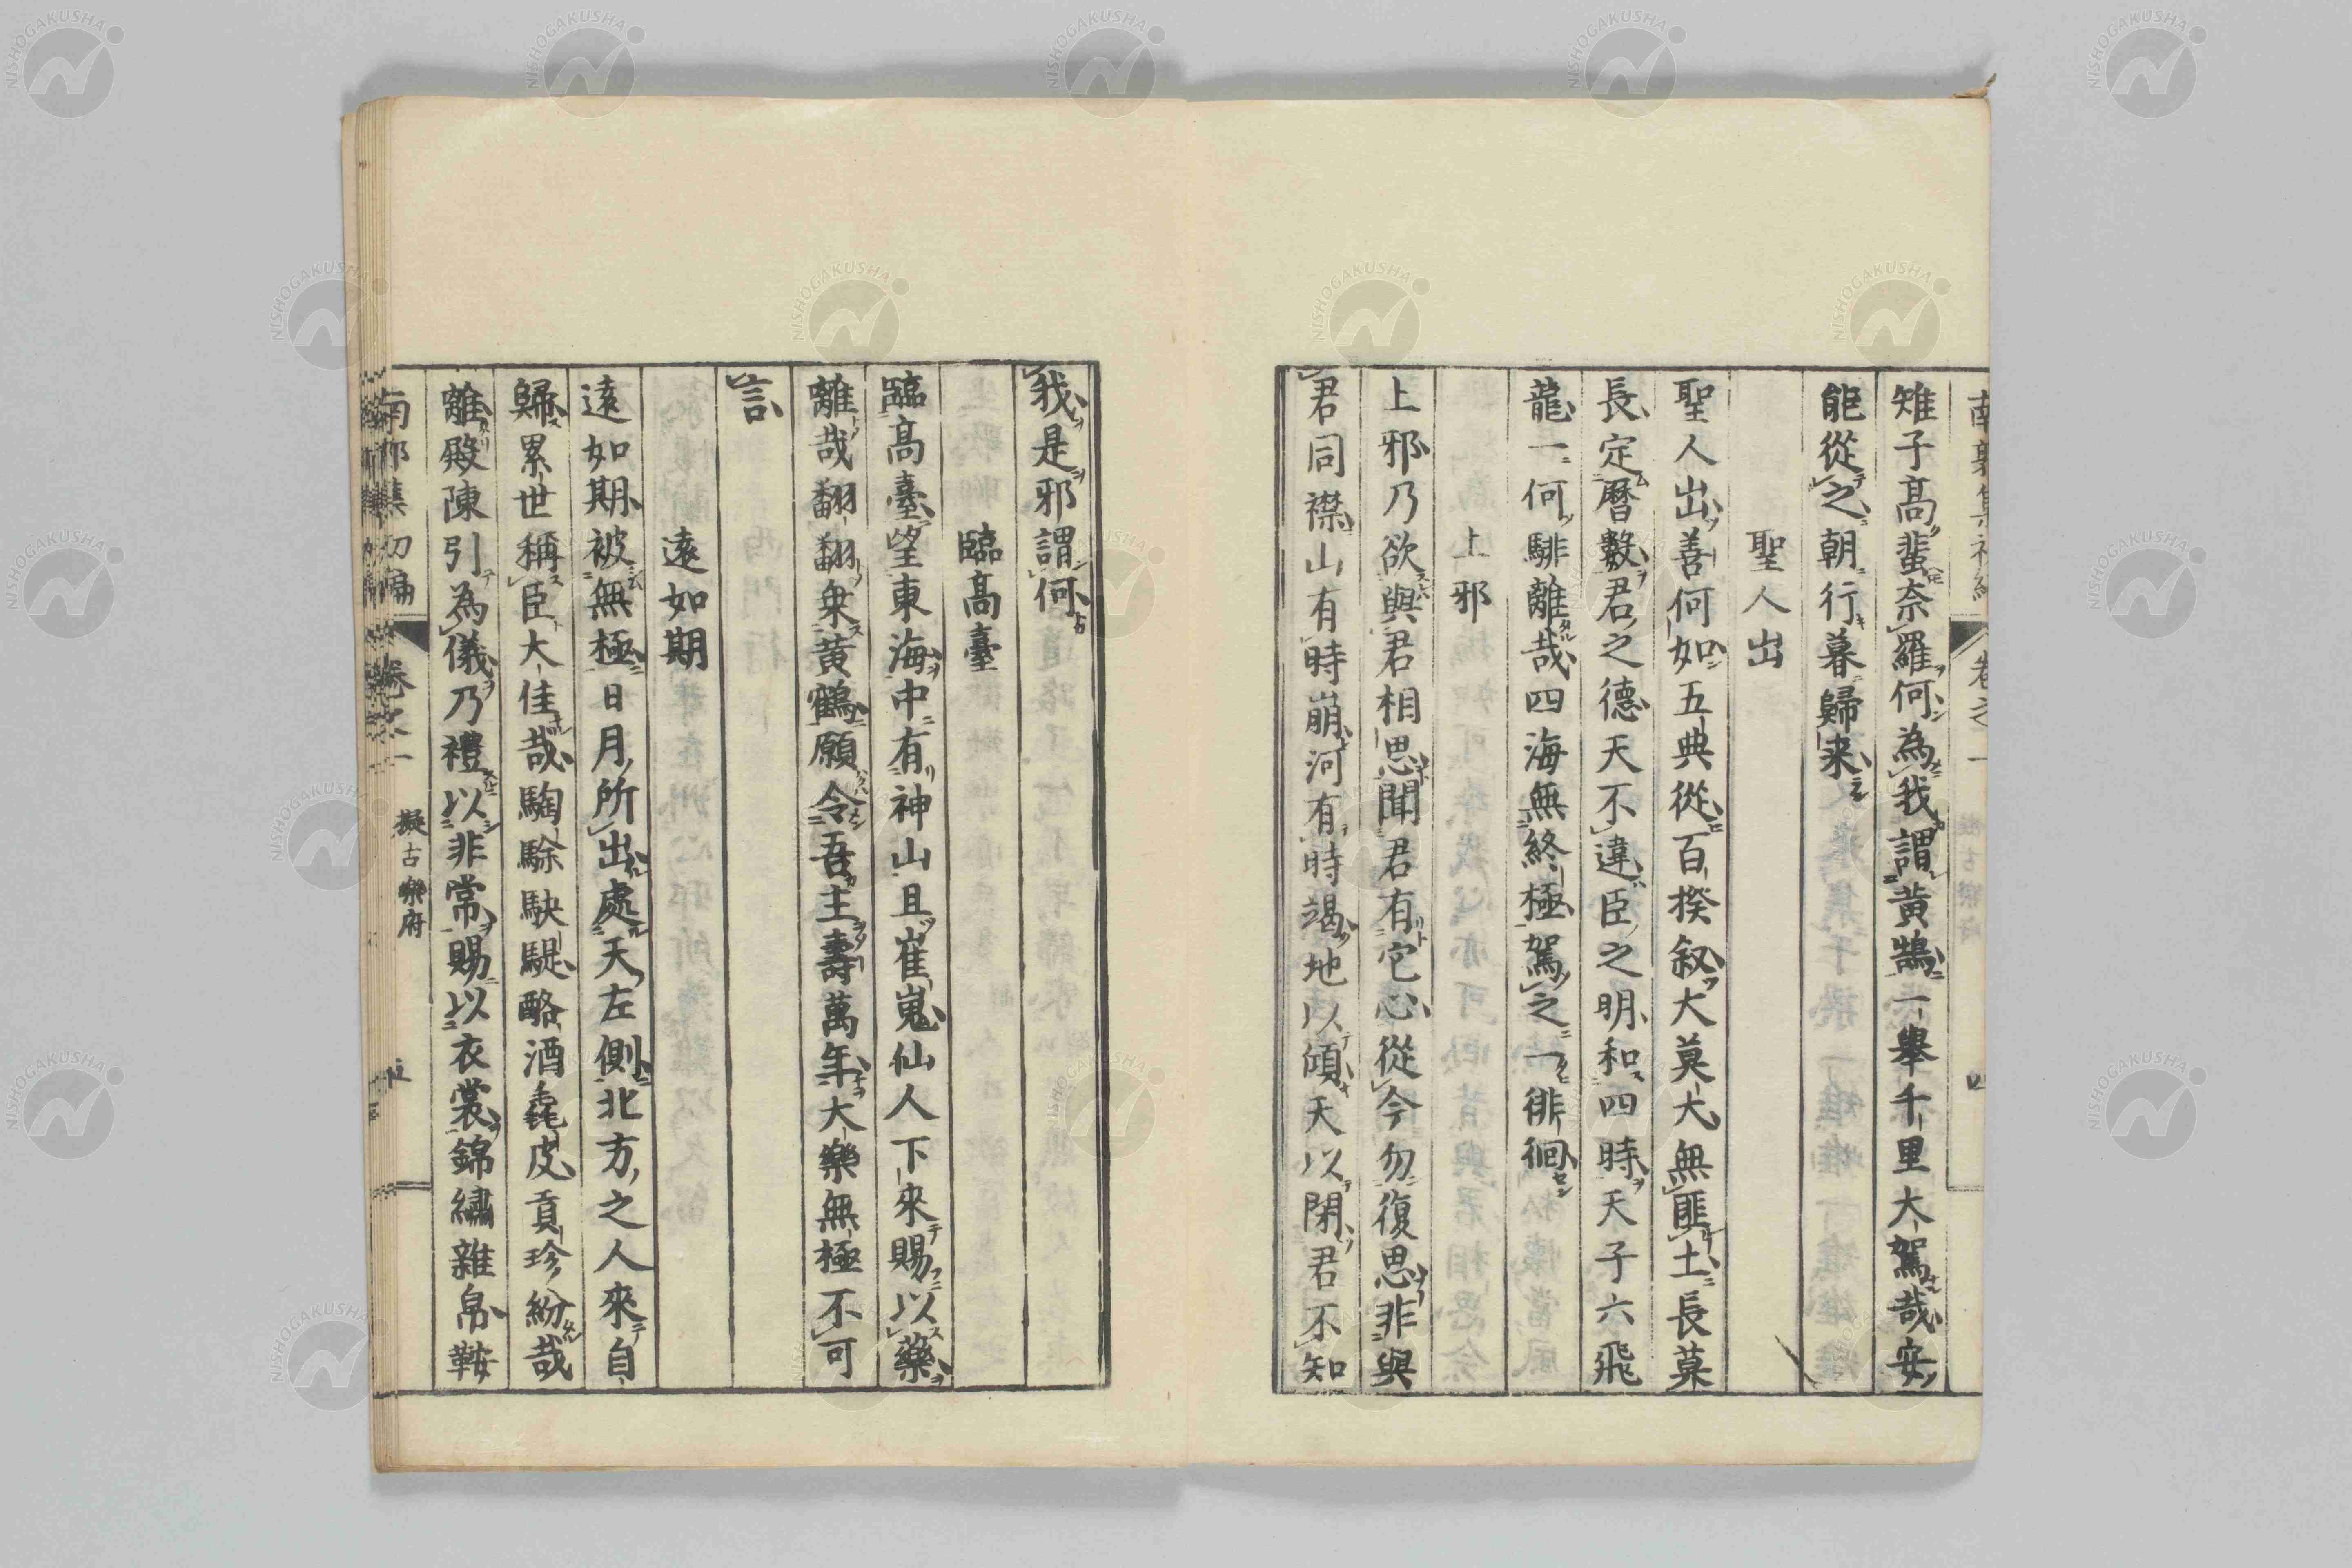 雉子高蜚奈羅何為我謂黄鵠一舉千里大駕哉安
能從之朝行暮歸来
聖人出
聖人出善何如五典從百揆叙大莫大無匪土長莫
長定曆數君之德天不違臣之明和四時天子六飛
龍一何騑離哉四海無終極駕之一徘徊
上邪
上邪乃欲與君相思聞君有它心從今勿復思非與
君同襟山有時崩河有時竭地以傾天以閉君不知
我是邪謂何
臨高臺
臨高臺望東海中有神山且崔嵬仙人下來賜以藥
離哉翻翻乗黄鶴願令吾主壽萬年大樂無極不可
言
遠如期
遠如期被無極日月所出處天左側北方之人來自
歸累世稱臣大佳哉騊駼駃騠酪酒毳皮貢珍紛哉
離殿陳引為儀乃禮以非常賜以衣裳錦繡雜帛鞍
南郭集初編 卷之一 擬古樂府
NISHOGAKUSHA